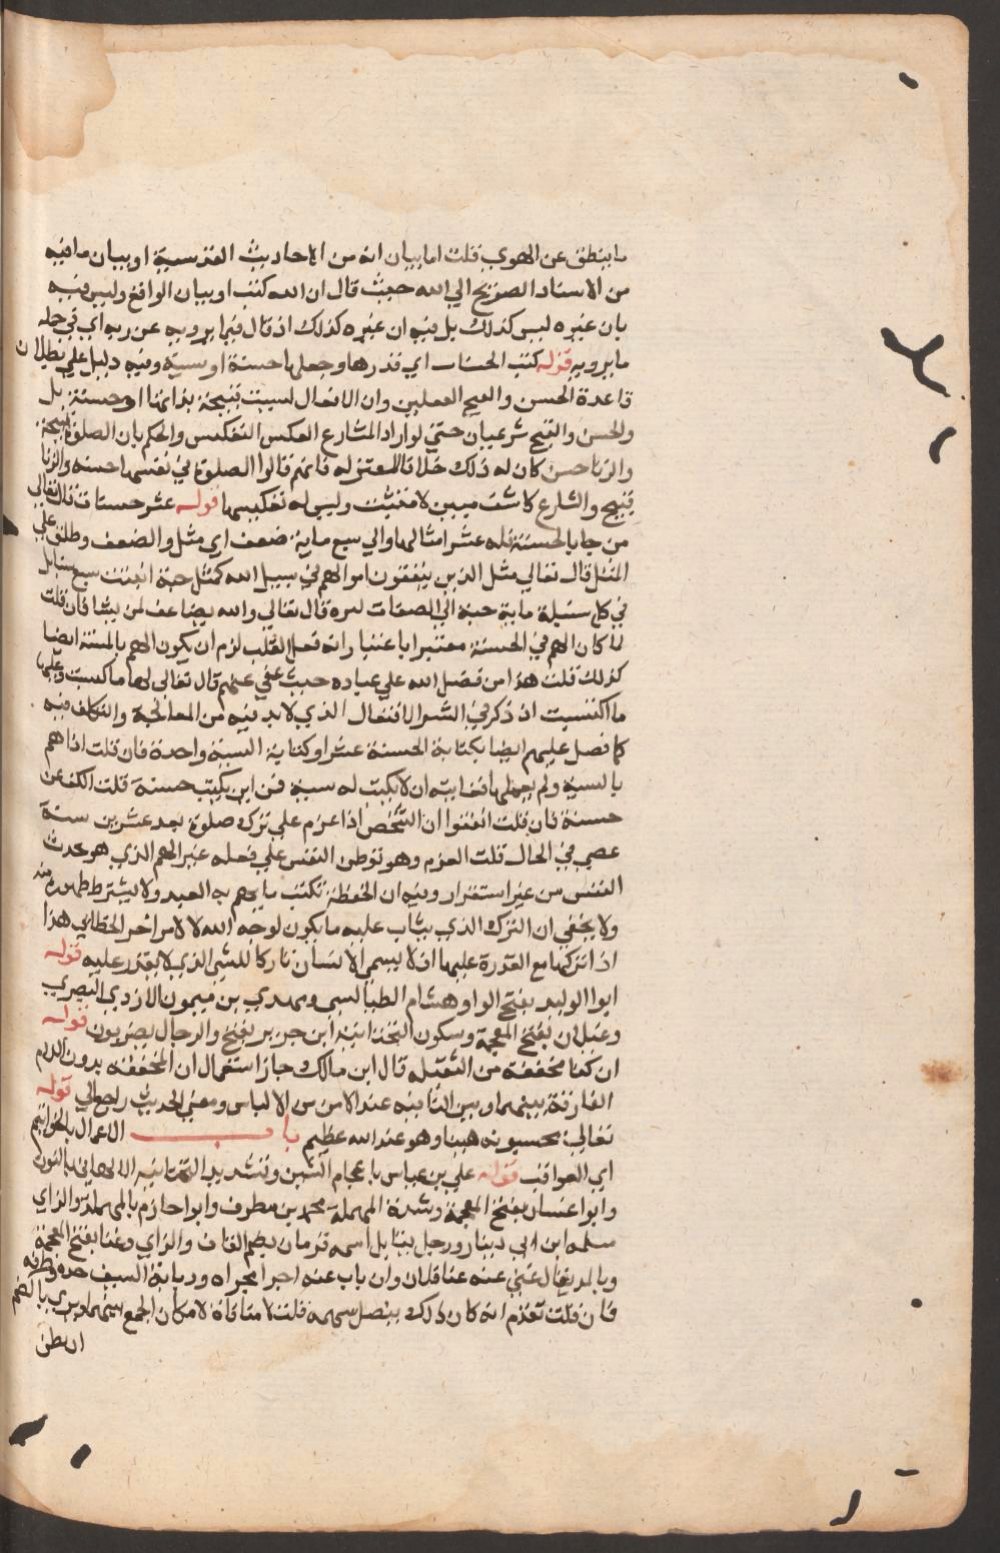 ما ينطق عن الهوي قلت اما بيان انه من الاحاديث القدسية او بيان ما فيه
من الاسناد الصريح الي الله حيث قال ان الله كتب او بيان الواقع وليس فيه
بان غيره ليس كذلك بل فيه ان غيره كذلك اذ قال فيما يرويه عن ربه اي في جملة
ما يرويه قوله كتب الحسنات اي قدرها وجعلها حسنة او سيئة وفيه دليل علي بطلان
قاعدة الحسن والقبح العقليين وان الافعال ليست قبيحة بذاتها او حسنة بل
والحسن والقبح شرعيان حتي لو اراد الشارع العكس التعكيس والحكم بان الصلوة قبيحة
والزنا حسن كان له ذلك خلافا للمعتزله فانهم قالوا الصلوة في نفسها حسنه والزنا
قبيح والشارع كاشف مبين لا مثبت وليس له تعكيسها قوله عشر حسنات قال تعالي
من جا بالحسنة فله عشر امثالها والي سبع ماية ضعف اي مثل والضعف يطلق علي
المثل قال تعالي مثل الذين ينفقون اموالهم في سبيل الله كمثل حبة انبتت سبع سنابل
في كل سنبلة ماية حبة الي اضعاف كثيره قال تعالي والله يضاعف لمن يشا فان قلت
لما كان الهم في الحسنة معتبرا باعتبار انه فعل القلب لزم ان يكون الهم بالسئة ايضا
كذلك قلت هذا من فضل الله علي عباده حيث عفي عنهم قال تعالي لها ما كسبت وعليها
ما اكتسبت اذ ذكر في الشر الافتعال الذي لابد فيه من المعالجة والتكلف فيه
كما فضل عليهم ايضا بكتابة الحسنة عشرا وكتابة السيئة واحدة فان قلت اذا هم
بالسيئة ولم يعملها فغايته ان لا يكتب له سيئة فمن اين يكتب حسنة قلت الكف عن
حسنة فان قلت اتفقوا ان الشخص اذا عزم علي ترك صلوة بعد عشرين سنة
عصي في الحال قلت العزم وهو توطن النفس علي فعله غير الهم الذي هو حدث
النفس من غير استقرار وفيه ان الحفظة تكتب ما يهم به العبد ولا يشترط ظهوره منه
ولا يخفي ان الترك الذي يثاب عليه ما يكون لوجه الله لا لامر اخر الخطابي هذا
اذا تركها مع القدرة عليها اذ لا يسمي الانسان تاركا للشي الذي لا يقدر عليه قوله
ابوا الوليد بفتح الواو هشام الطيالسي ومهدي بن ميمون الازدي البصري
وغيلان بفتح المعجمة وسكون التحتانيه ابن جرير بفتح والرجال بصريون قوله
ان كنا مخففة من الثقيله قال ابن مالك جاز استعمال ان المخففه بدون اللام
الفارقة بينهما وبين النافيه عند الامن من الالباس ومعني الحديث راجع الي قوله
تعالي تحسبونه هينا وهو عند الله عظيم باب الاعمال بالخواتيم
اي العواقب قوله علي بن عياش باعجام الشين وتشديد التحتانيه الالهاني بالنون
وابوا غسان بفتح المعجمة وشدة المهملة محمد بن مطرف وابوا حازم بالمهملة والزاي
سلمه ابن ابي دينار ورجل يقاتل اسمه قزمان بضم القاف والزاي وغنا بفتح المعجمة
وبالمد يقال غني عنه غنا فلان وناب عنه اجرا مجراه وذبابة السيف حده وطرفه
فان قلت تقدم انه كان ذلك بنصل سهمه قلت لا منافاة لامكان الجمع بينهما ويري بالضم
اي يظن